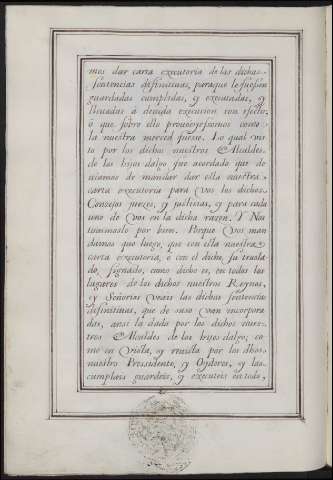 mos dar carta executoria de las dichas
sentencias difinitiuas, paraque le fuessen
guardadas cumplidas, y executadas, y
lleuadas à deuida execucion con efecto,
ò que sobre ello proueyessemos como
la nuestra merced fuesse. Lo qual vis
to por los dichos nuestros Alcaldes
de los hijos dalgo fue acordado que de
uiamos de mandar dar esta nuestra
carta executoria para Vos los dichos
Concejos juezes, y justicias, y para cada
uno de Vos en la dicha razon. Y Nos
tuuimoslo por bien. Porque Vos man
damos que luego, que con esta nuestra
carta executoria, ò con el dicho, su trasla
do, signado, como dicho es, en todos los
lugares de los dichos nuestros Reynos,
y Señorios veais las dichas sentencias
difinitiuas, que de suso van incorpora
das, ansi la dada por los dichos nues
tros Alcaldes de los hijos dalgo, co
mo en Vista, y reuista por los dhos
nuestro Pressidente, y Oydores, y las
cumplais guardeis, y executeis en todo,